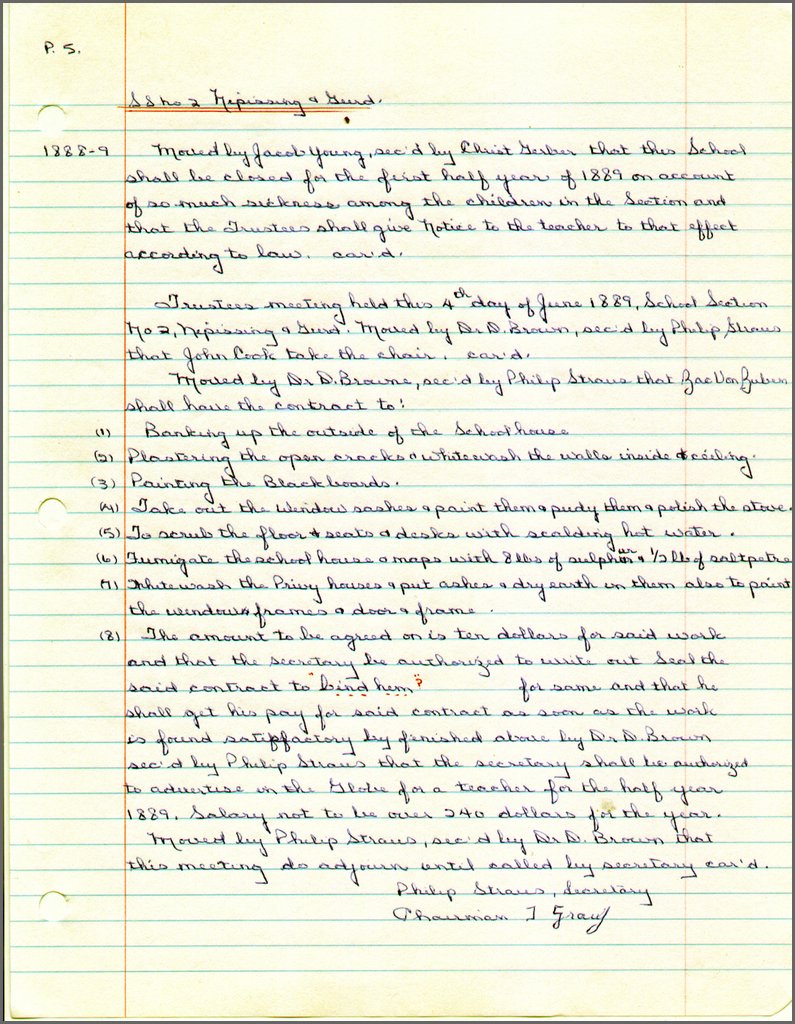 P. 5.
S S no 2 Nipissing & Gurd.
1888-9 Moved by Jacob Young, sec'd by Christ Gerber that this School
shall be closed for the first half year of 1889 on account
of so much sickness among the children in the Section and
that the Trustees shall give Notice to the teacher to that effect
according to law. car'd.
Trustees meeting held this 4th day of June 1889, School Section
No 2, Nipissing & Gurd. Moved by Dr D. Brown, sec'd by Philip Straus
that John Cook take the chair. car'd.
Moved by Dr D. Browne, sec'd by Philip Straus that Zac Von Zuben
shall have the contract to:
(1) Banking up the outside of the Schoolhouse
(2) Plastering the open cracks & whitewash the walls inside & ceiling.
(3) Painting the Blackboards.
(4) Take out the window sashes & paint them & pudy them & polish the stove.
(5) To scrub the floor & seats & desks with scalding hot water.
(6) Fumigate the school house & maps with 8 lbs of sulphur & 1/2 lb of saltpetre
(7) Whitewash the Privy houses & put ashes & dry earth in them also to paint
the windows frames & door & frame.
(8) The amount to be agreed on is ten dollars for said work
and that the secretary be authorized to write out Seal the
said contract to bind hem ? for same and that he
shall get his pay for said contract as soon as the work
is found satisfactory by finished above by Dr D. Brown
sec'd by Philip Straus that the secretary shall be authorized
to advertise in the Globe for a teacher for the half year
1889. Salary not to be over 240 dollars for the year.
Moved by Philip Straus, sec'd by Dr D. Brown that
this meeting do adjourn until called by secretary car'd.
Philip Straus, Secretary
Chairman J Gray